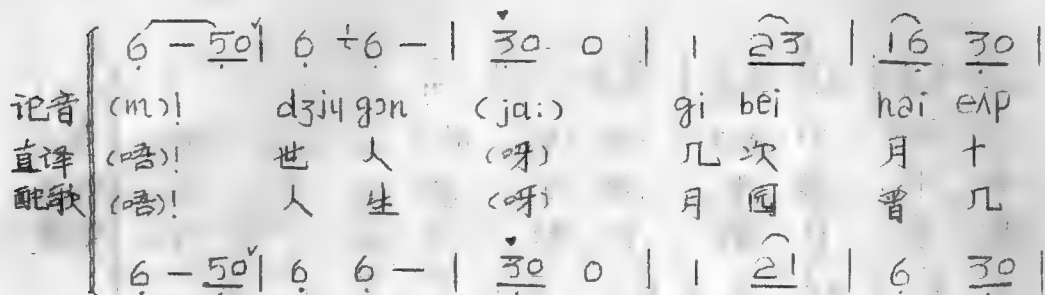 6 - 50 | 6 ÷6 - | 30 0 | 1 23 | 16 30 |
记音 (m)! dʒiɥ gɔn (ja:) gi bei hai eʌp
直译 (唔)! 世 人 (呀) 几 次 月 十
配歌 (唔)! 人 生 (呀) 月 园 曾 几
6 - 50 | 6 6 - | 30 0 | 1 21 | 6 30 |